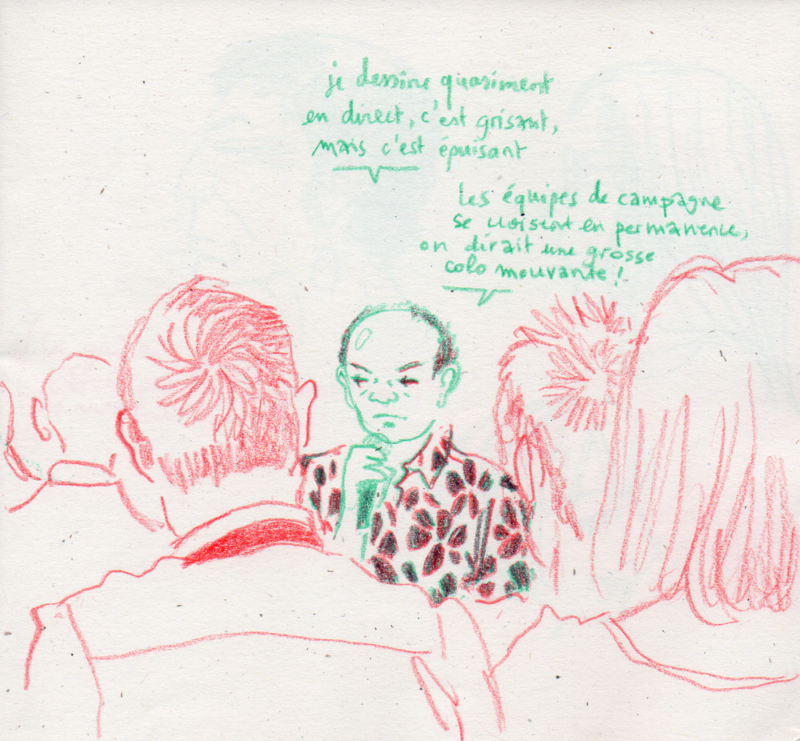 je dessine quasiment
en direct, c'est grisant,
mais c'est épuisant
Les équipes de campagne
se croisent en permanence,
on dirait une grosse
colo mouvante !